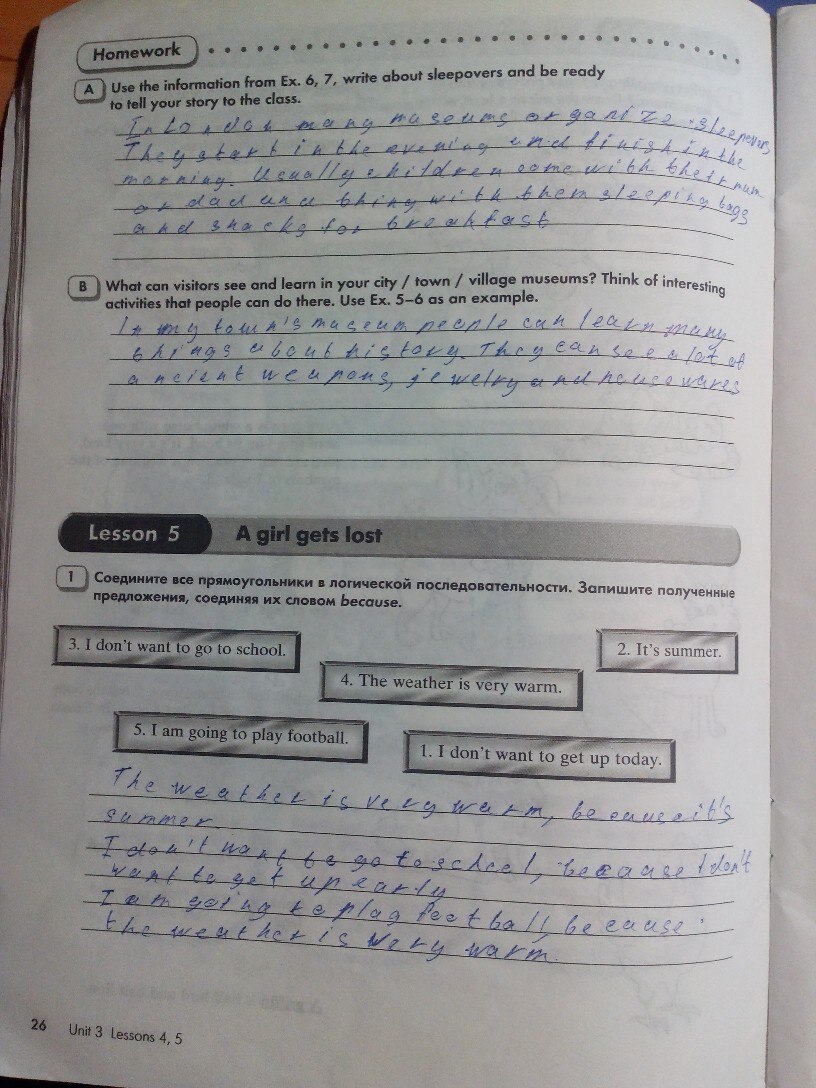 Homework
A Use the information from Ex. 6, 7, write about sleepovers and be ready
to tell your story to the class.
In London many museums organize sleepovers
They start in the evening and finish in the
morning. Usually children come with their mum
or dad and bring with them sleeping bags
and snacks for breakfast
B What can visitors see and learn in your city / town / village museums? Think of interesting
activities that people can do there. Use Ex. 5–6 as an example.
In my town's museum people can learn many
things about history. They can see a lot of
ancient weapons, jewelry and housewares
Lesson 5 A girl gets lost
1 Соедините все прямоугольники в логической последовательности. Запишите полученные
предложения, соединяя их словом because.
3. I don't want to go to school.
2. It's summer.
4. The weather is very warm.
5. I am going to play football.
1. I don't want to get up today.
The weather is very warm, because it's
summer.
I don't want to go to school, because I don't
want to get up early
I am going to play football, because
the weather is very warm.
26 Unit 3 Lessons 4, 5